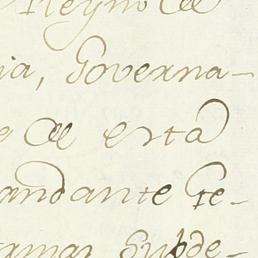 Reyno de
ia, Governa-
de esta
andante Ge-
Subde-